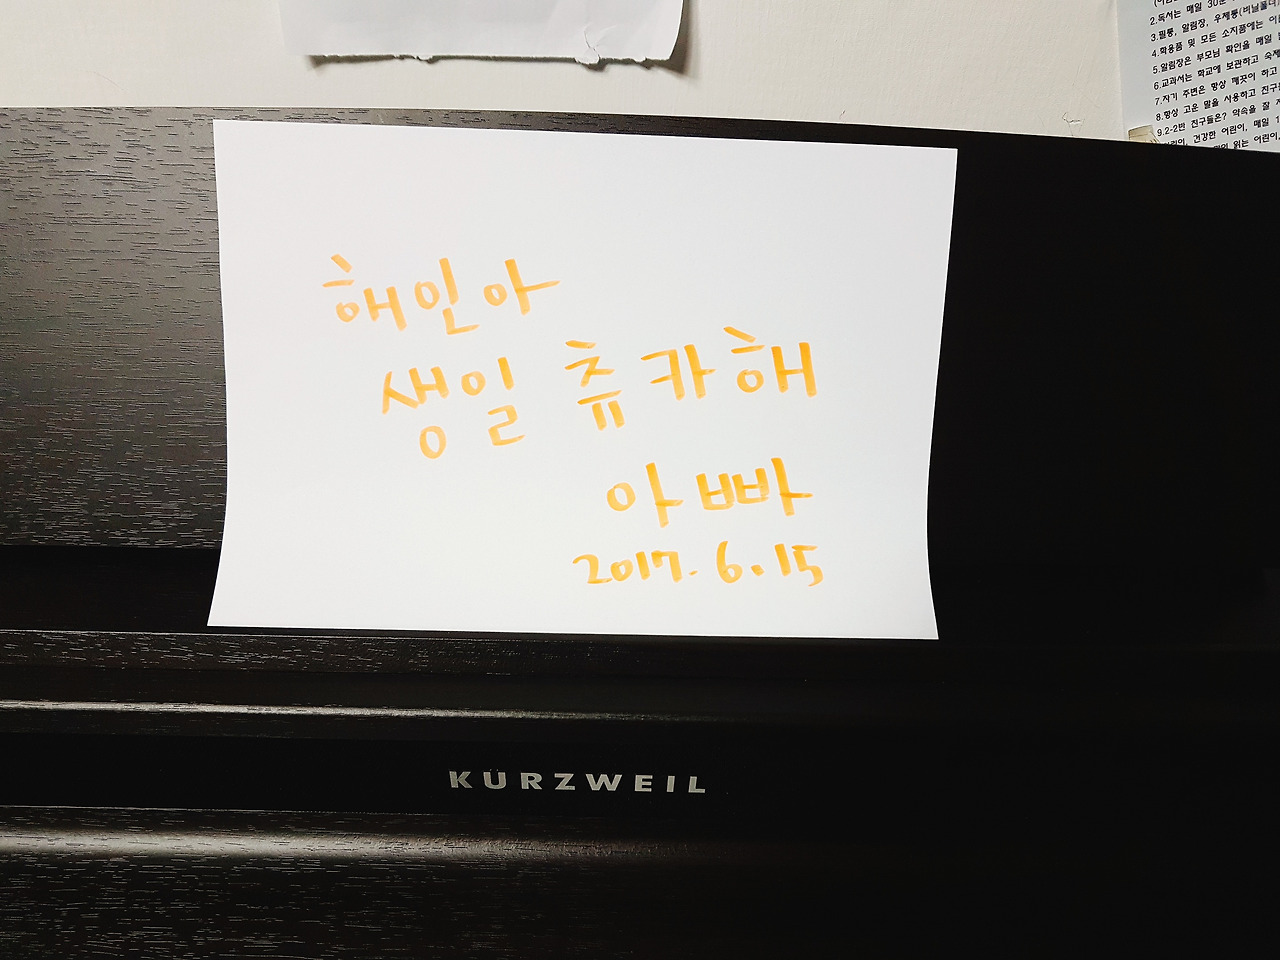 2.독서는 매일 30분
3.필통, 알림장, 우체통(비닐폴더)
4.학용품 및 모든 소지품에는 이름
5.알림장은 부모님 확인을 매일
6.교과서는 학교에 보관하고 숙제
7.자기 주변은 항상 깨끗이 하고
8.항상 고운 말을 사용하고 친구
9.2-2반 친구들은? 약속을 잘
어린이, 건강한 어린이, 매일 1
읽는 어린이,
해인아
생일 츄카해
아빠
2017.6.15
KURZWEIL